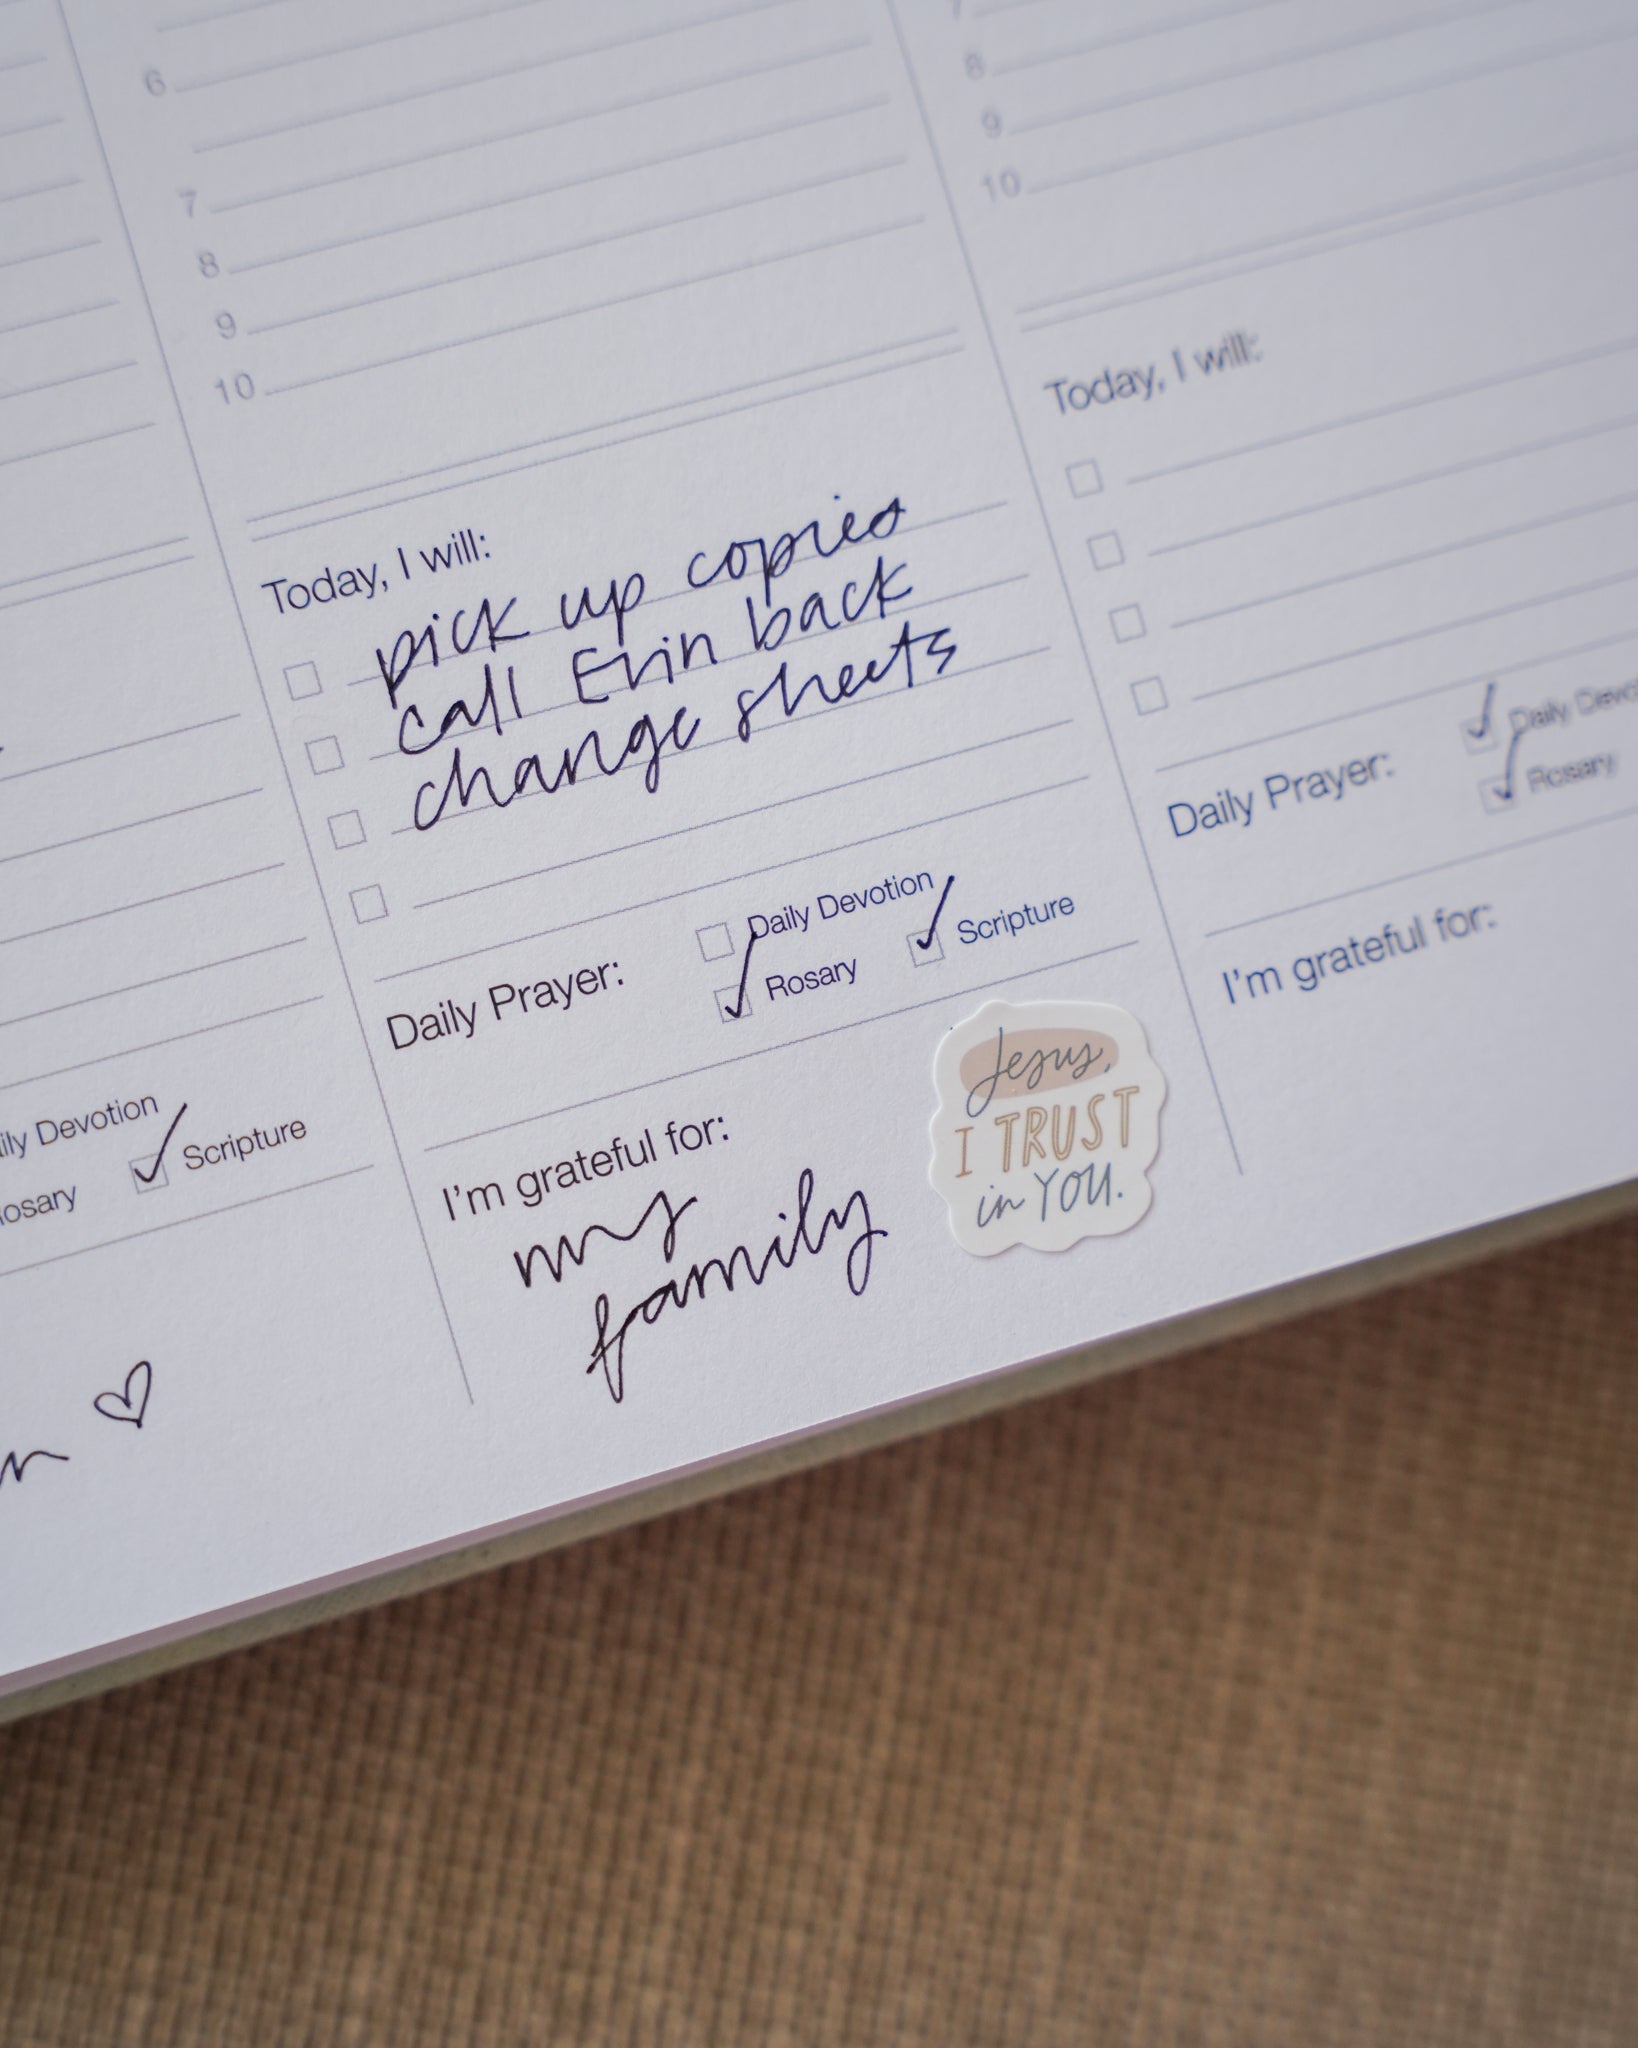 Daily Devotion
Scripture
6
7
8
9
10
Today, I will:
pick up copies
call Erin back
change sheets
Daily Prayer:
Daily Devotion
Rosary
Scripture
I'm grateful for:
my
family
Jesus,
I TRUST
in YOU.
8
9
10
Today, I will:
Daily Prayer:
Daily Devo
Rosary
I'm grateful for: